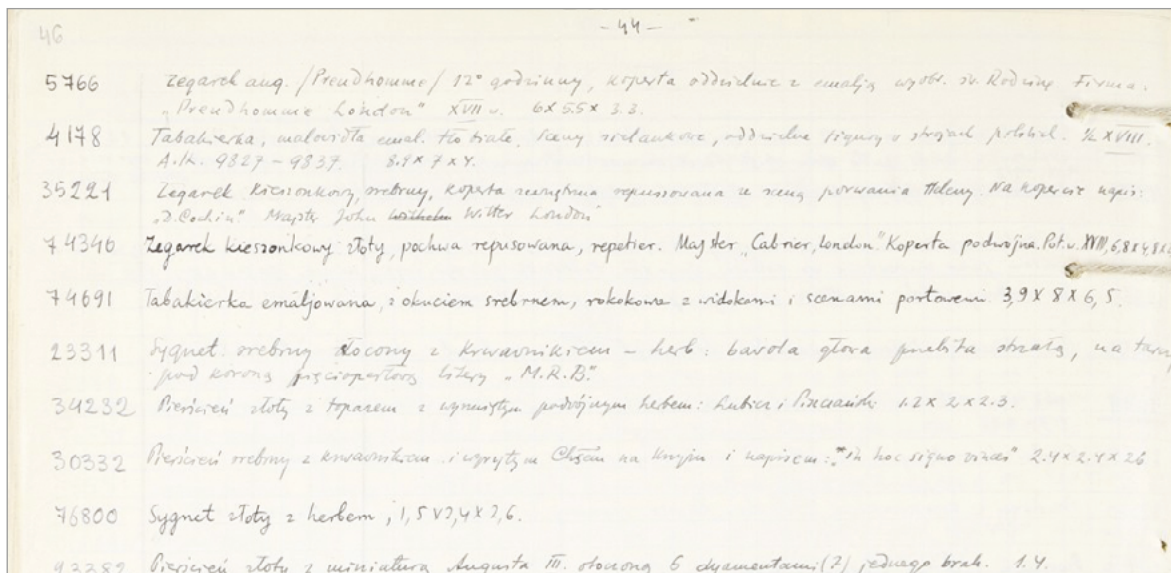 46
- 44 -
5766 Zegarek ang. /Preudhomme/ 12° godzinny, koperta oddzielnie z emalją wyobr. św. Rodzinę Firma.
"Preudhomme London" XVII w. 6 x 5.5 x 3.3.
4178 Tabakierka, malowidła emal. tło białe, sceny sielankowe, oddzielne figury w strojach polskich. ½ XVIII.
A.K. 9827 - 9837. 8.9 x 7 x 4.
35221 Zegarek kieszonkowy, srebrny, koperta zewnętrzna repusowana ze sceną porwania Heleny. Na kopercie napis:
"D. Cochin". Majster John Wilhelm Witter London
74346 Zegarek kieszonkowy złoty, pochwa repusowana, repetier. Majster "Cabrier, London". Koperta podwójna. Poł. w. XVIII, 6,8 x 4,8 x
74691 Tabakierka emaljowana, z okuciem srebrnem, rokokowa z widokami i scenami portowemi 3,9 x 8 x 6,5.
23311 Sygnet srebrny złocony z krwawnikiem - herb: bawola głowa przebita strzałą, na
pod koroną pięcioperłową litery "M.R.B."
34232 Pierścień złoty z topazem z wyrzniętym podwójnym herbem: Lubicz i 1.2 x 2 x 2.3.
30332 Pierścień srebrny z krwawnikiem i wyrytym na krzyżu i napisem: "in hoc signo vinces" 2.4 x 2.4 x 26
76800 Sygnet złoty z herbem, 1,5 x 2,4 x 2,6.
Pierścień złoty z miniaturą Augusta III. otoczoną 6 dyamentami (?) jednego brak. 1.4.